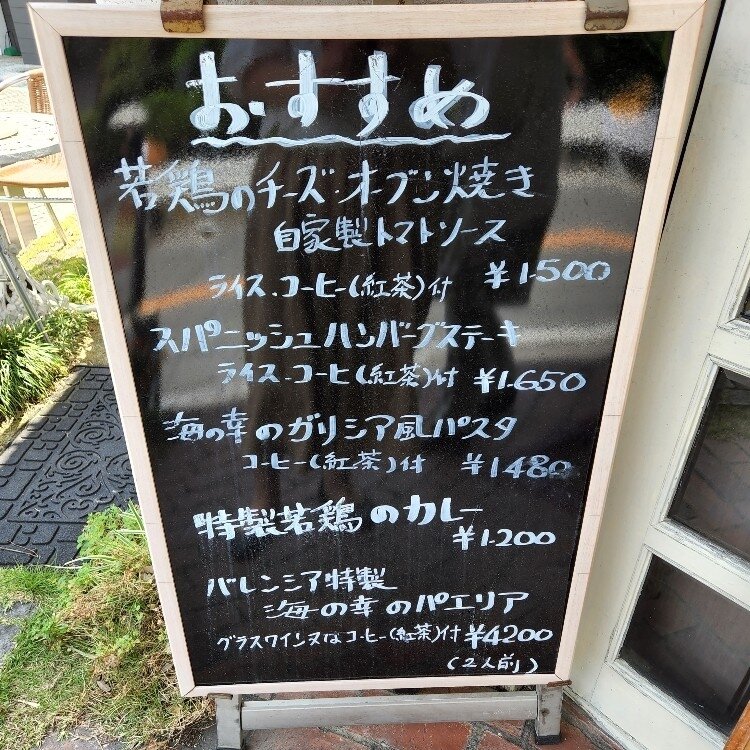 おすすめ
若鶏のチーズ・オーブン焼き
自家製トマトソース
ライス、コーヒー(紅茶)付 ¥1.500
スパニッシュハンバーグステーキ
ライス・コーヒ(紅茶)付 ¥1.650
海の幸のガリシア風パスタ
コーヒー(紅茶)付 ¥1480
特製若鶏のカレー
¥1.200
バレンシア特製
海の幸のパエリア
グラスワイン又はコーヒー(紅茶)付 ¥4200
(2人前)